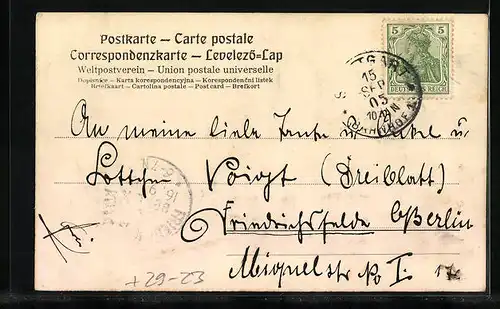 Postkarte – Carte postale
Correspondenzkarte – Levelező-Lap
Weltpostverein – Union postale universelle
Dopisnice – Karta korespondencyjna – Korespondenční lístek
Briefkaart – Cartolina postale – Post card – Brefkort
5 5
DEUTSCHES REICH
STUTTGART
15
SEP
05
10-11 N
An meine liebe Tante u. Onkel u.
Lottchen Voigt (Dreiblatt)
Friedrichsfelde b/Berlin
Miquelstr No I.
+29-23